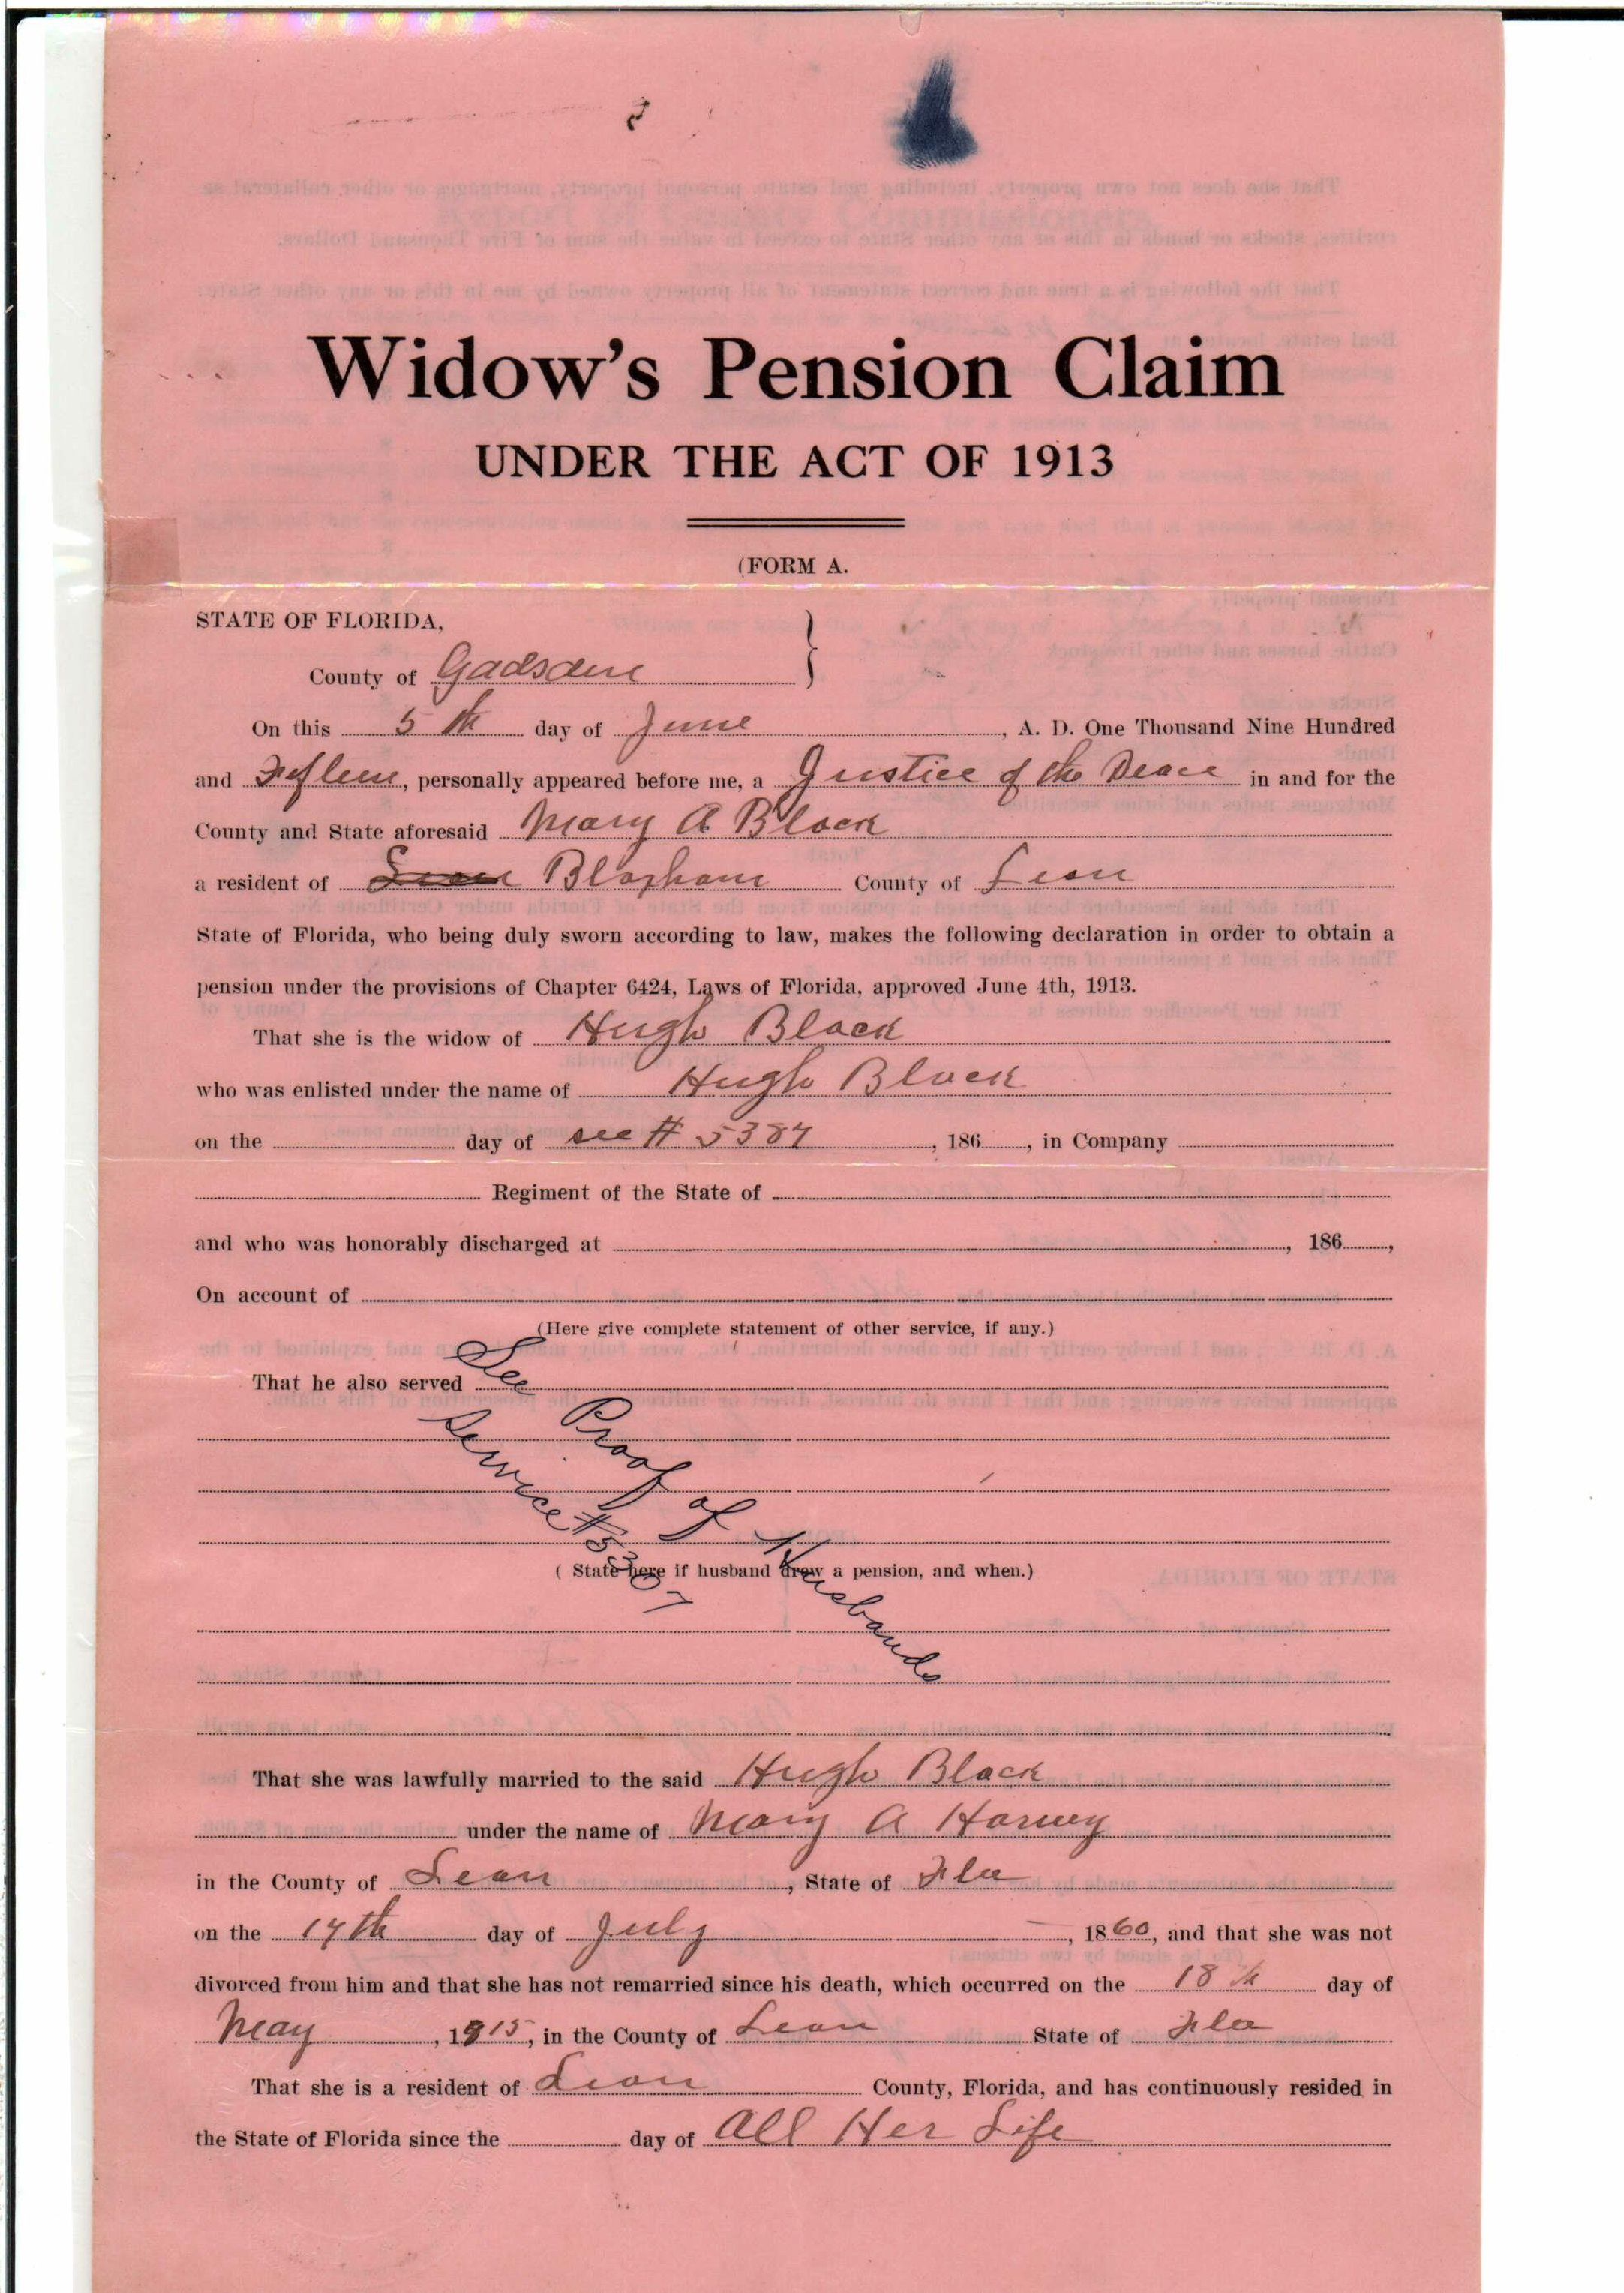 Widow's Pension Claim
UNDER THE ACT OF 1913
(FORM A.
STATE OF FLORIDA,
County of Gadsden
On this 5th day of June, A. D. One Thousand Nine Hundred
and Fifteen, personally appeared before me, a Justice of the Peace in and for the
County and State aforesaid Mary A Black
a resident of Bloxham County of Leon
State of Florida, who being duly sworn according to law, makes the following declaration in order to obtain a
pension under the provisions of Chapter 6424, Laws of Florida, approved June 4th, 1913.
That she is the widow of Hugh Black
who was enlisted under the name of Hugh Black
on the day of see #, 186, in Company
Regiment of the State of
and who was honorably discharged at , 186,
On account of
(Here give complete statement of other service, if any.)
That he also served See
Proof of Husbands
Service
( State here if husband drew a pension, and when.)
That she was lawfully married to the said Hugh Black
under the name of Mary A Harvey
in the County of Leon, State of Fla
on the day of July, 1860, and that she was not
divorced from him and that she has not remarried since his death, which occurred on the 18th day of
May, 1915, in the County of Leon State of Fla
That she is a resident of Leon County, Florida, and has continuously resided in
the State of Florida since the day of All Her Life